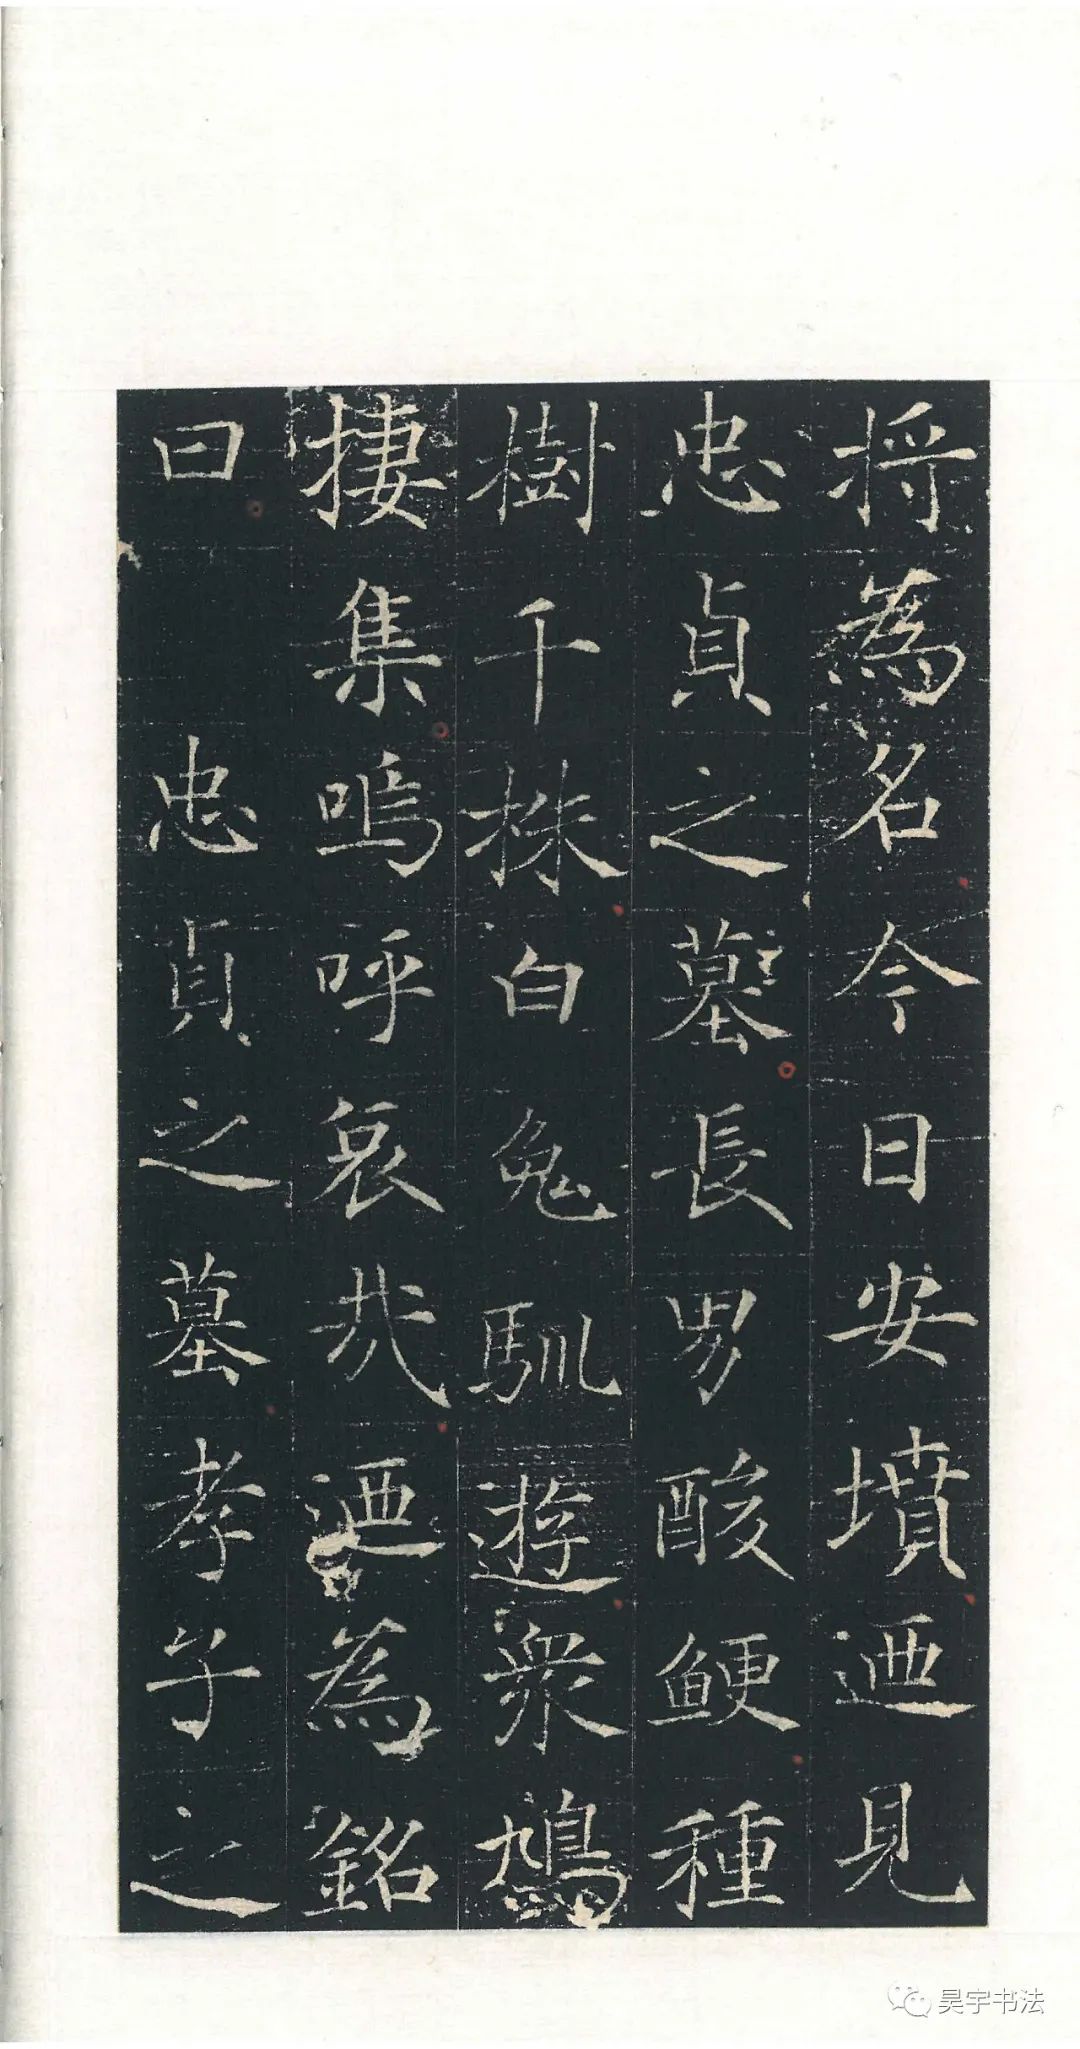 将為名今日安墳迺見
忠貞之墓長男酸鯁種
樹千株白兔馴遊衆鳩
棲集嗚呼哀哉迺為銘
曰忠貞之墓孝子之
昊宇书法